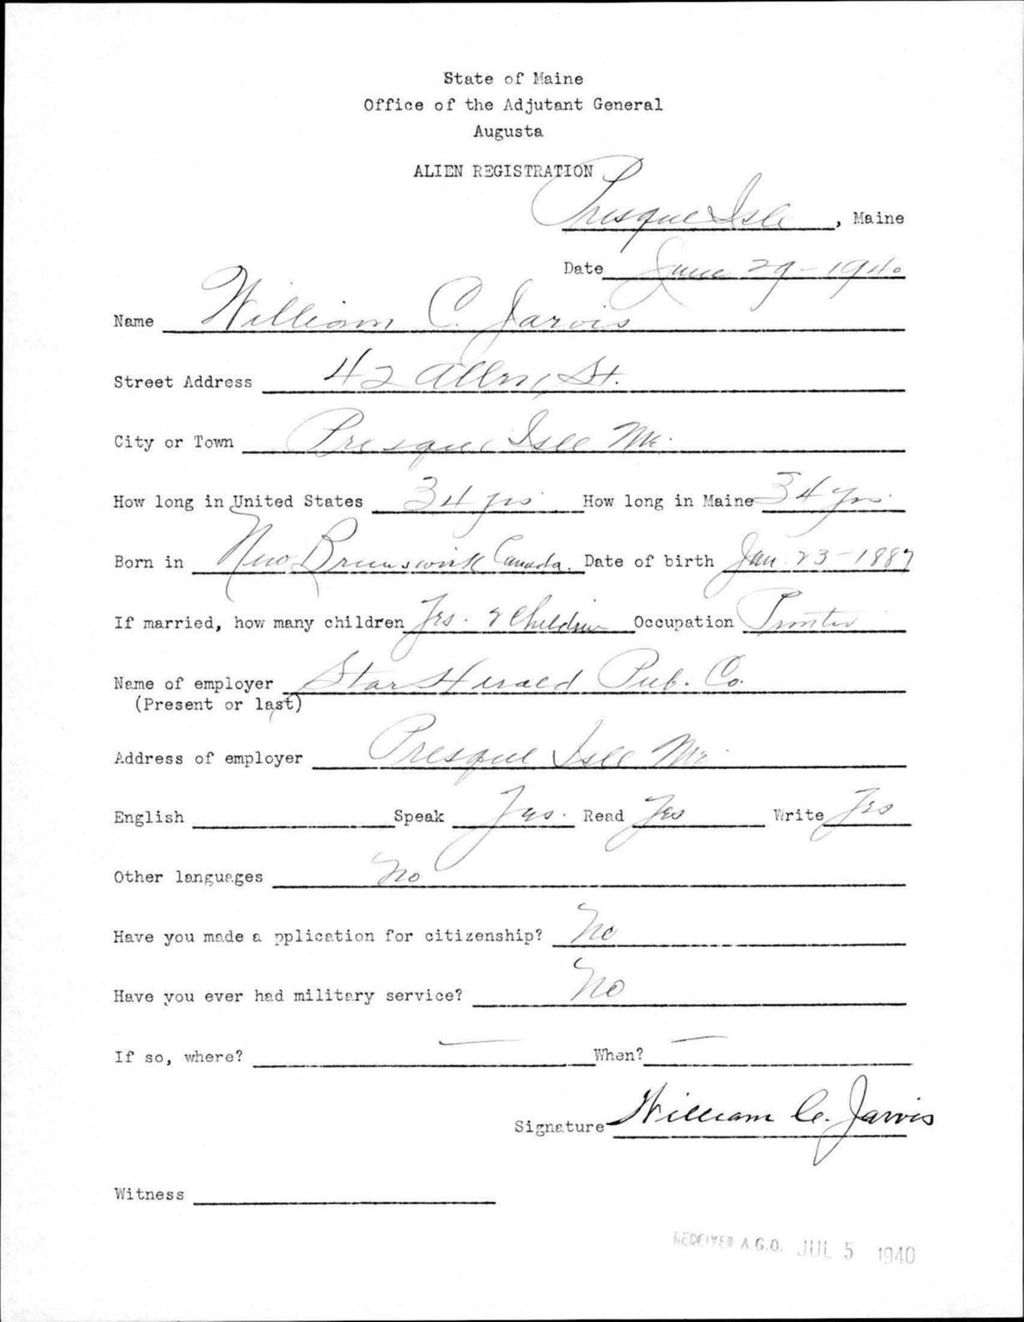 State of Maine
Office of the Adjutant General
Augusta
ALIEN REGISTRATION
Presque Isle, Maine
Date June 29 - 1940
Name William C. Jarvis
Street Address 42 Allen St.
City or Town Presque Isle Me.
How long in United States 34 yrs How long in Maine 34 yrs.
Born in New Brunswick Canada. Date of birth Jan. 23 - 1887
If married, how many children Yes. Children Occupation Printer
Name of employer Star Herald Pub. Co.
(Present or last)
Address of employer Presque Isle Me.
English Speak Yes. Read Yes Write Yes
Other languages No
Have you made application for citizenship? No
Have you ever had military service? No
If so, where? — When? —
Signature William C. Jarvis
Witness
RECEIVED A.G.O. JUL 5 1940